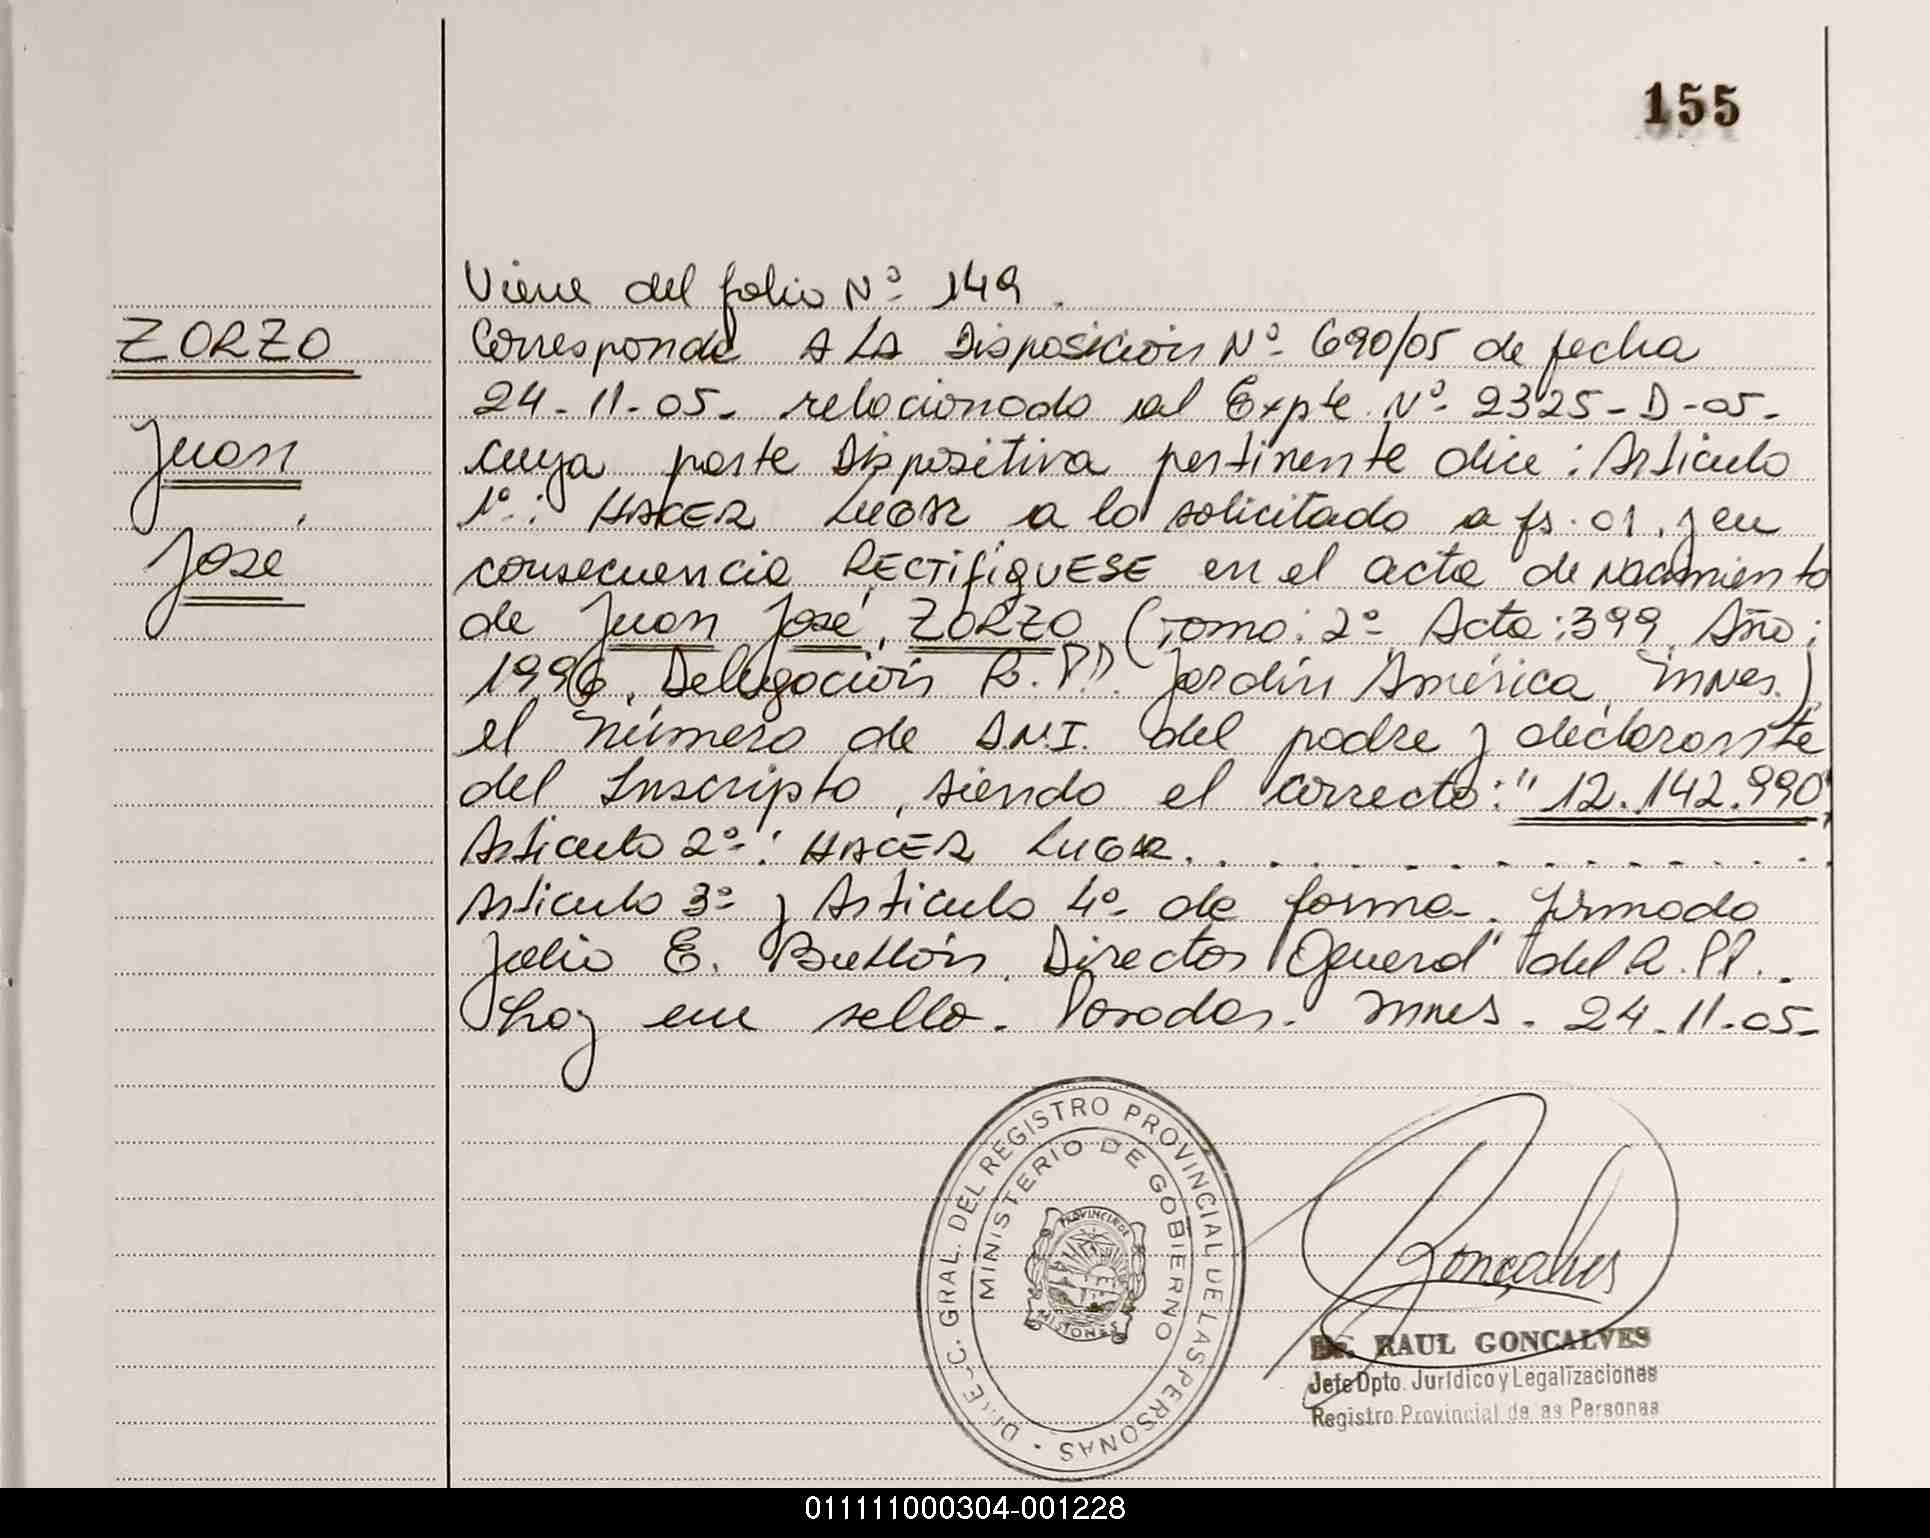 155
Viene del folio Nº 149.
ZORZO
Juan
José
Corresponde A LA Disposición Nº 690/05 de fecha
24-11-05- relacionado al Expte Nº 2325-D-05-
cuya parte Dispositiva pertinente dice: Artículo
1º: HACER LUGAR a lo solicitado a fs. 01. y en
consecuencia RECTIFIQUESE en el acta de nacimiento
de Juan José ZORZO (Tomo: 2º Acta: 399 Año:
1996. Delegación R.PP. Jardín América, Mnes.)
el número de D.N.I. del padre y declarante
del Inscripto, siendo el correcto: "12.142.990"
Artículo 2º: HACER LUGAR. . . . . . . . . . . . . . . .
Artículo 3º y Artículo 4º de forma. Firmado
Julio E. Buttón. Director General del R.PP.
Hay un sello. Posadas. Mnes. 24-11-05-
DIREC. GRAL. DEL REGISTRO PROVINCIAL DE LAS PERSONAS
MINISTERIO DE GOBIERNO
PROVINCIA DE
MISIONES
Gonçalves
Dr. RAUL GONCALVES
Jefe Dpto. Jurídico y Legalizaciones
Registro Provincial de as Personas
011111000304-001228